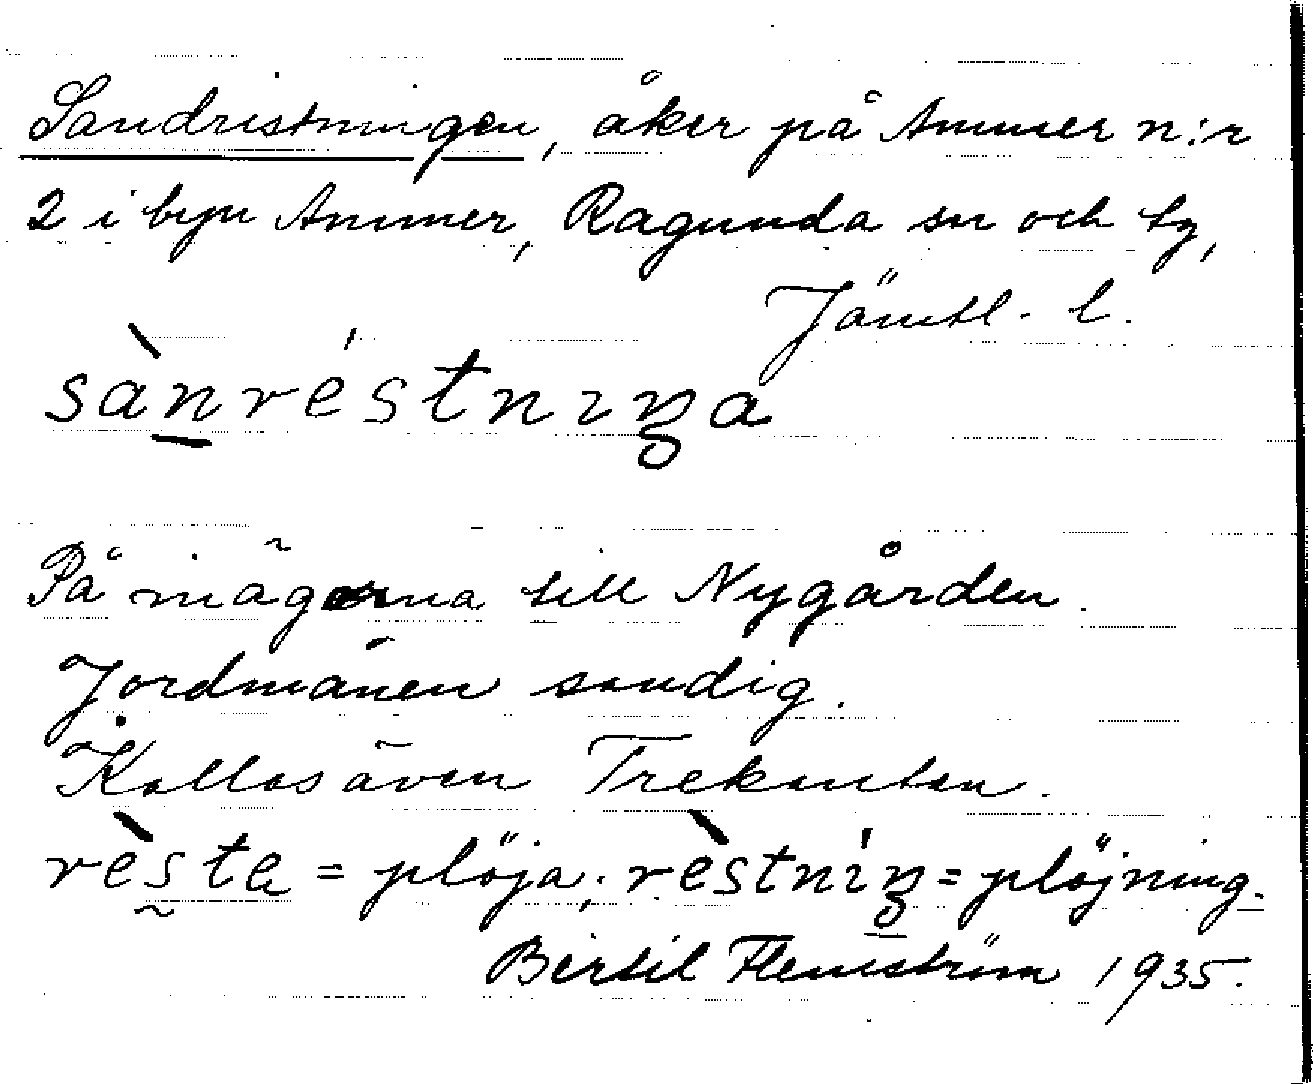 Sandristningen, åker på Ammer n:r
2 i byn Ammer, Ragunda sn och tg,
Jämtl. l.
sànréstnıŋa
På mågorna till Nygården.
Jordmånen sandig.
Kallas även Trekanten.
rèste = plöja; rèstnıŋ = plöjning.
Bertil Flemström 1935.